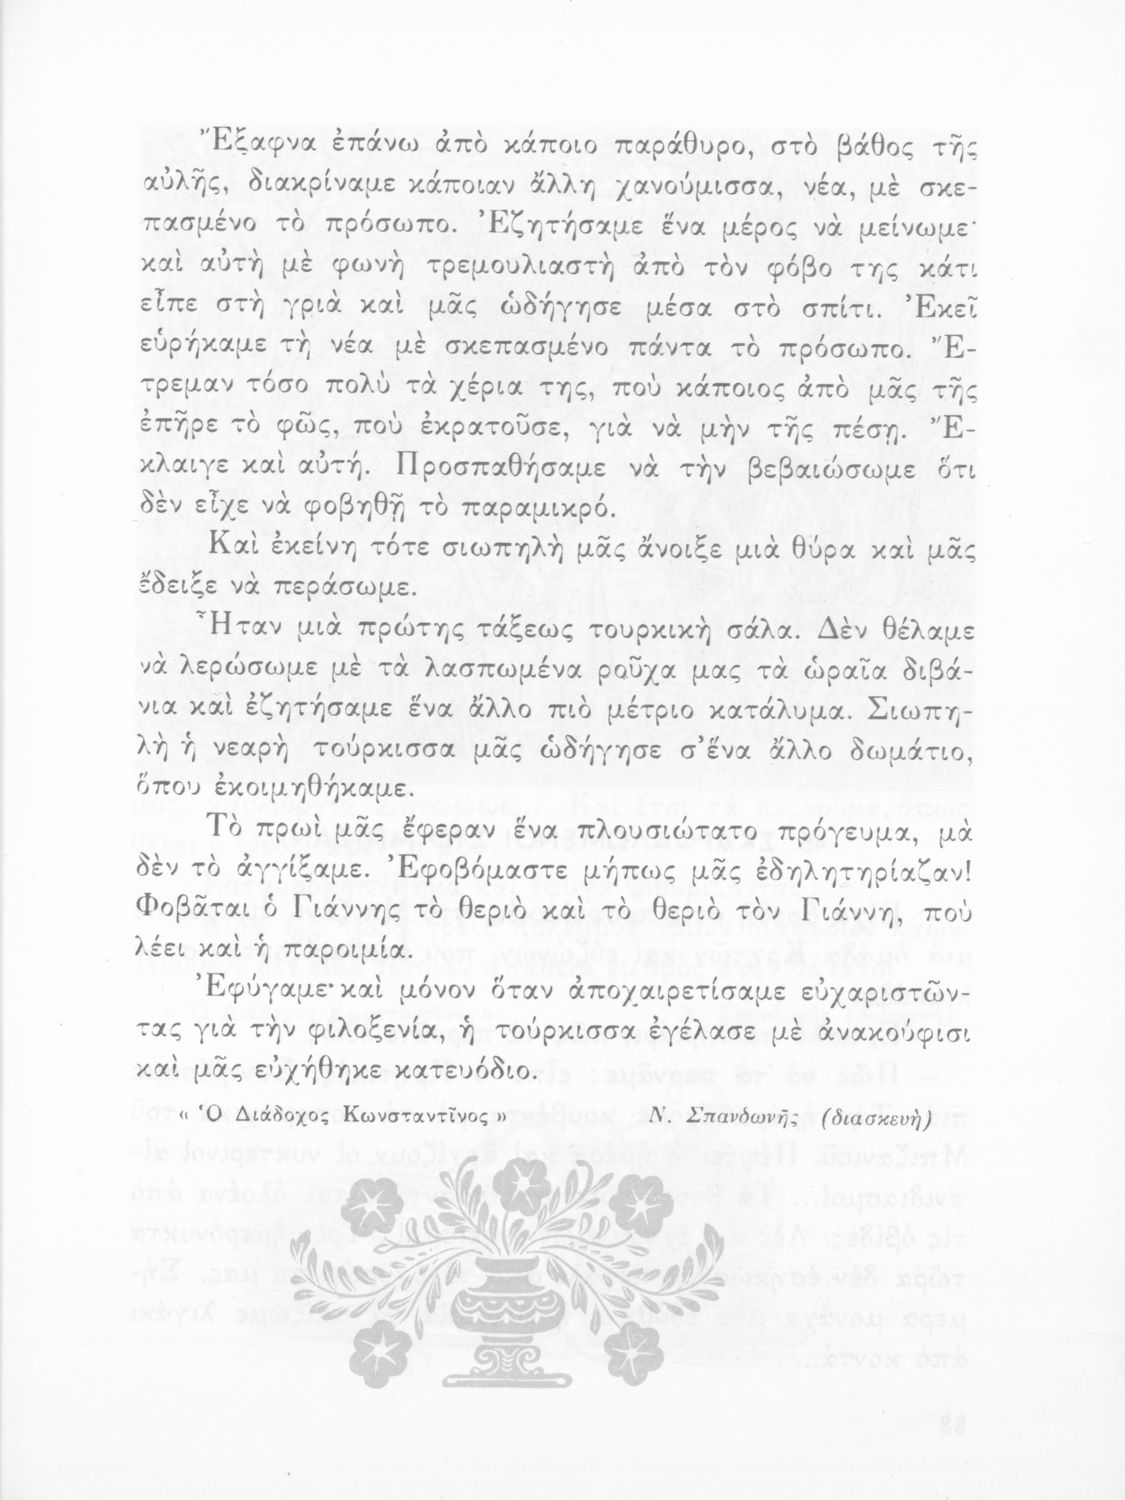 Ἔξαφνα ἐπάνω ἀπὸ κάποιο παράθυρο, στὸ βάθος τῆς
αὐλῆς, διακρίναμε κάποιαν ἄλλη χανούμισσα, νέα, μὲ σκε-
πασμένο τὸ πρόσωπο. Ἐζητήσαμε ἕνα μέρος νὰ μείνωμε·
καὶ αὐτὴ μὲ φωνὴ τρεμουλιαστὴ ἀπὸ τὸν φόβο της κάτι
εἶπε στὴ γριὰ καὶ μᾶς ὡδήγησε μέσα στὸ σπίτι. Ἐκεῖ
εὑρήκαμε τὴ νέα μὲ σκεπασμένο πάντα τὸ πρόσωπο. Ἔ-
τρεμαν τόσο πολὺ τὰ χέρια της, ποὺ κάποιος ἀπὸ μᾶς τῆς
ἐπῆρε τὸ φῶς, ποὺ ἐκρατοῦσε, γιὰ νὰ μὴν τῆς πέση. Ἔ-
κλαιγε καὶ αὐτή. Προσπαθήσαμε νὰ τὴν βεβαιώσωμε ὅτι
δὲν εἶχε νὰ φοβηθῆ τὸ παραμικρό.
Καὶ ἐκείνη τότε σιωπηλὴ μᾶς ἄνοιξε μιὰ θύρα καὶ μᾶς
ἔδειξε νὰ περάσωμε.
Ἦταν μιὰ πρώτης τάξεως τουρκικὴ σάλα. Δὲν θέλαμε
νὰ λερώσωμε μὲ τὰ λασπωμένα ροῦχα μας τὰ ὡραῖα διβά-
νια καὶ ἐζητήσαμε ἕνα ἄλλο πιὸ μέτριο κατάλυμα. Σιωπη-
λὴ ἡ νεαρὴ τούρκισσα μᾶς ὡδήγησε σ’ἕνα ἄλλο δωμάτιο,
ὅπου ἐκοιμηθήκαμε.
Τὸ πρωὶ μᾶς ἔφεραν ἕνα πλουσιώτατο πρόγευμα, μὰ
δὲν τὸ ἀγγίξαμε. Ἐφοβόμαστε μήπως μᾶς ἐδηλητηρίαζαν!
Φοβᾶται ὁ Γιάννης τὸ θεριὸ καὶ τὸ θεριὸ τὸν Γιάννη, ποὺ
λέει καὶ ἡ παροιμία.
Ἐφύγαμε· καὶ μόνον ὅταν ἀποχαιρετίσαμε εὐχαριστῶν-
τας γιὰ τὴν φιλοξενία, ἡ τούρκισσα ἐγέλασε μὲ ἀνακούφισι
καὶ μᾶς εὐχήθηκε κατευόδιο.
« Ὁ Διάδοχος Κωνσταντῖνος » Ν. Σπανδωνῆς (διασκευὴ)